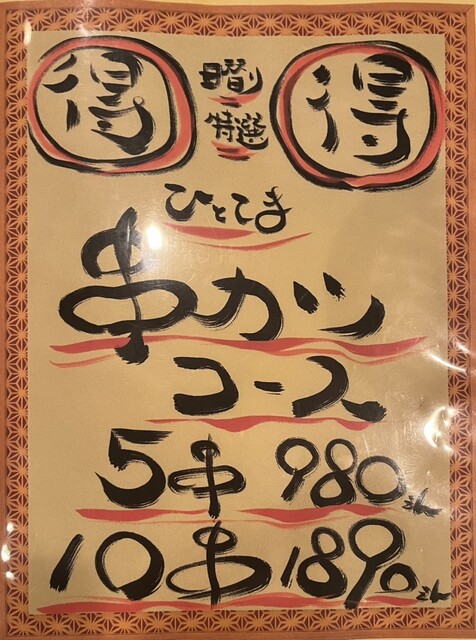 得 日替り 得
特選
ひとてま
串カツ
コース
5串 980えん
10串 1890えん